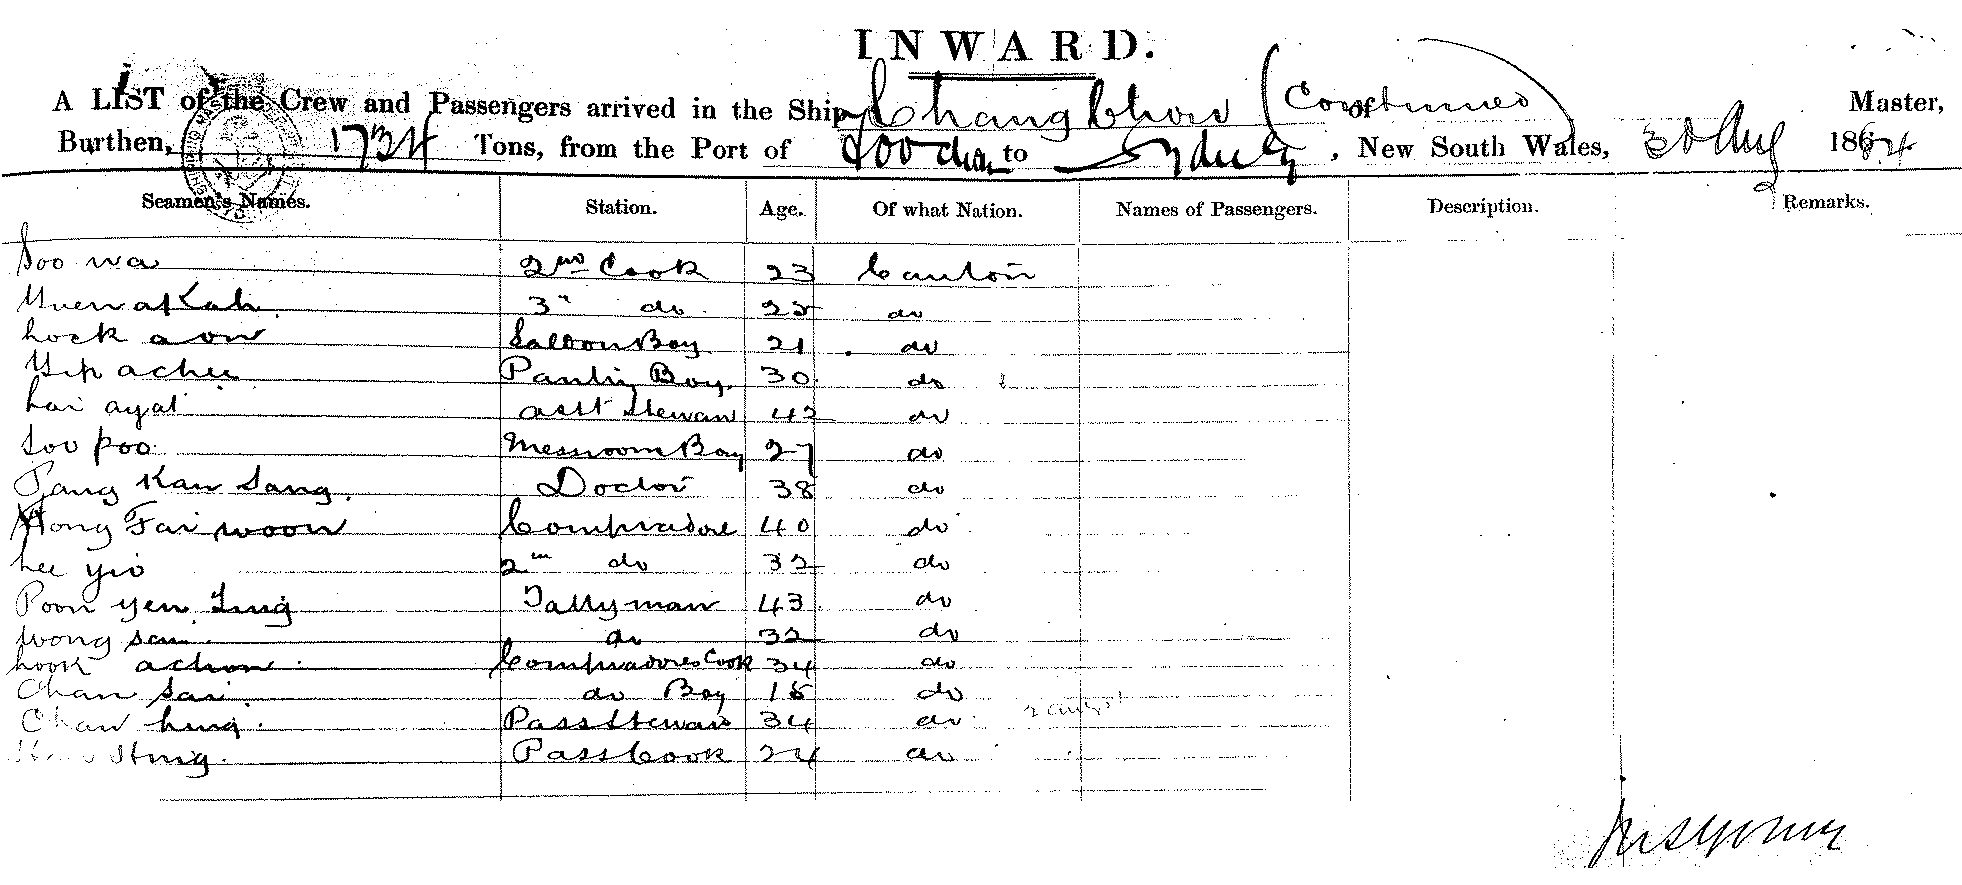 INWARD.
A LIST of the Crew and Passengers arrived in the Ship Changchow (Continued) of Master,
Burthen, 1734 Tons, from the Port of Foochow to Sydney, New South Wales, 30 Aug 1884
Seamen's Names. Station. Age. Of what Nation. Names of Passengers. Description. Remarks.
Soo wa 2nd Cook 23 Canton
3" do 22 do
hock aon Saloon Boy 21 do
Yip achee Pantry Boy. 30 do
Lai ayat asst Steward 42 do
Soo poo Messroom Boy 27 do
Pang Kan Sang. Doctor 38 do
Wong Fai woon Compradore 40 do
Lee yio 2nd do 32 do
Poon yen Ting Tallyman 43 do
Wong sam do 32 do
hook achon Compradores Cook 34 do
Chan Sai do Boy 18 do
Chan hing. Pass Steward 34 do
Pass Cook 24 do